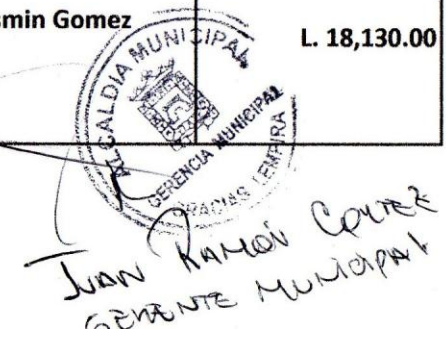 smin Gomez
L. 18,130.00
ALCALDIA MUNICIPAL
GERENCIA MUNICIPAL
GRACIAS LEMPIRA
JUAN RAMON CORTEZ
GERENTE MUNICIPAL